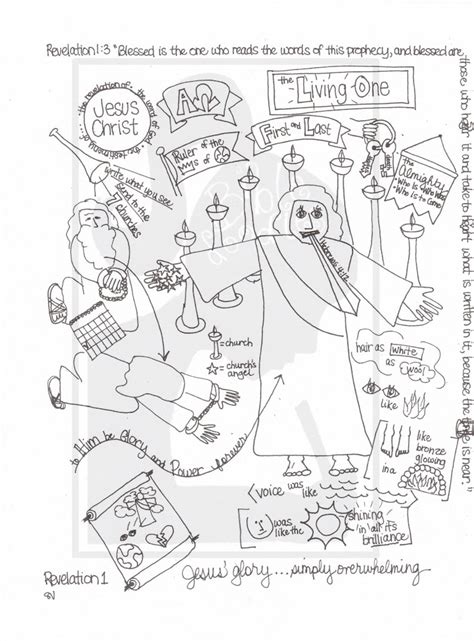 Revelation 1:3 "Blessed is the one who reads the words of this prophecy, and blessed are
those who hear it and take to heart what is written in it, because the time is near."
the revelation of
Jesus
Christ
ΑΩ
the Living One
First and Last
Ruler of the
of
The
Almighty
Who Is Who Was
Who Is to Come
write what you see
send to the
7
churches
Hebrews 4:12
= church
= church's
angel
hair as white
as wool
like
like
bronze
glowing
in a
to Him be Glory and Power forever
voice was like
was
like the
shining
in all its
brilliance
Revelation 1
Jesus' glory...simply overwhelming